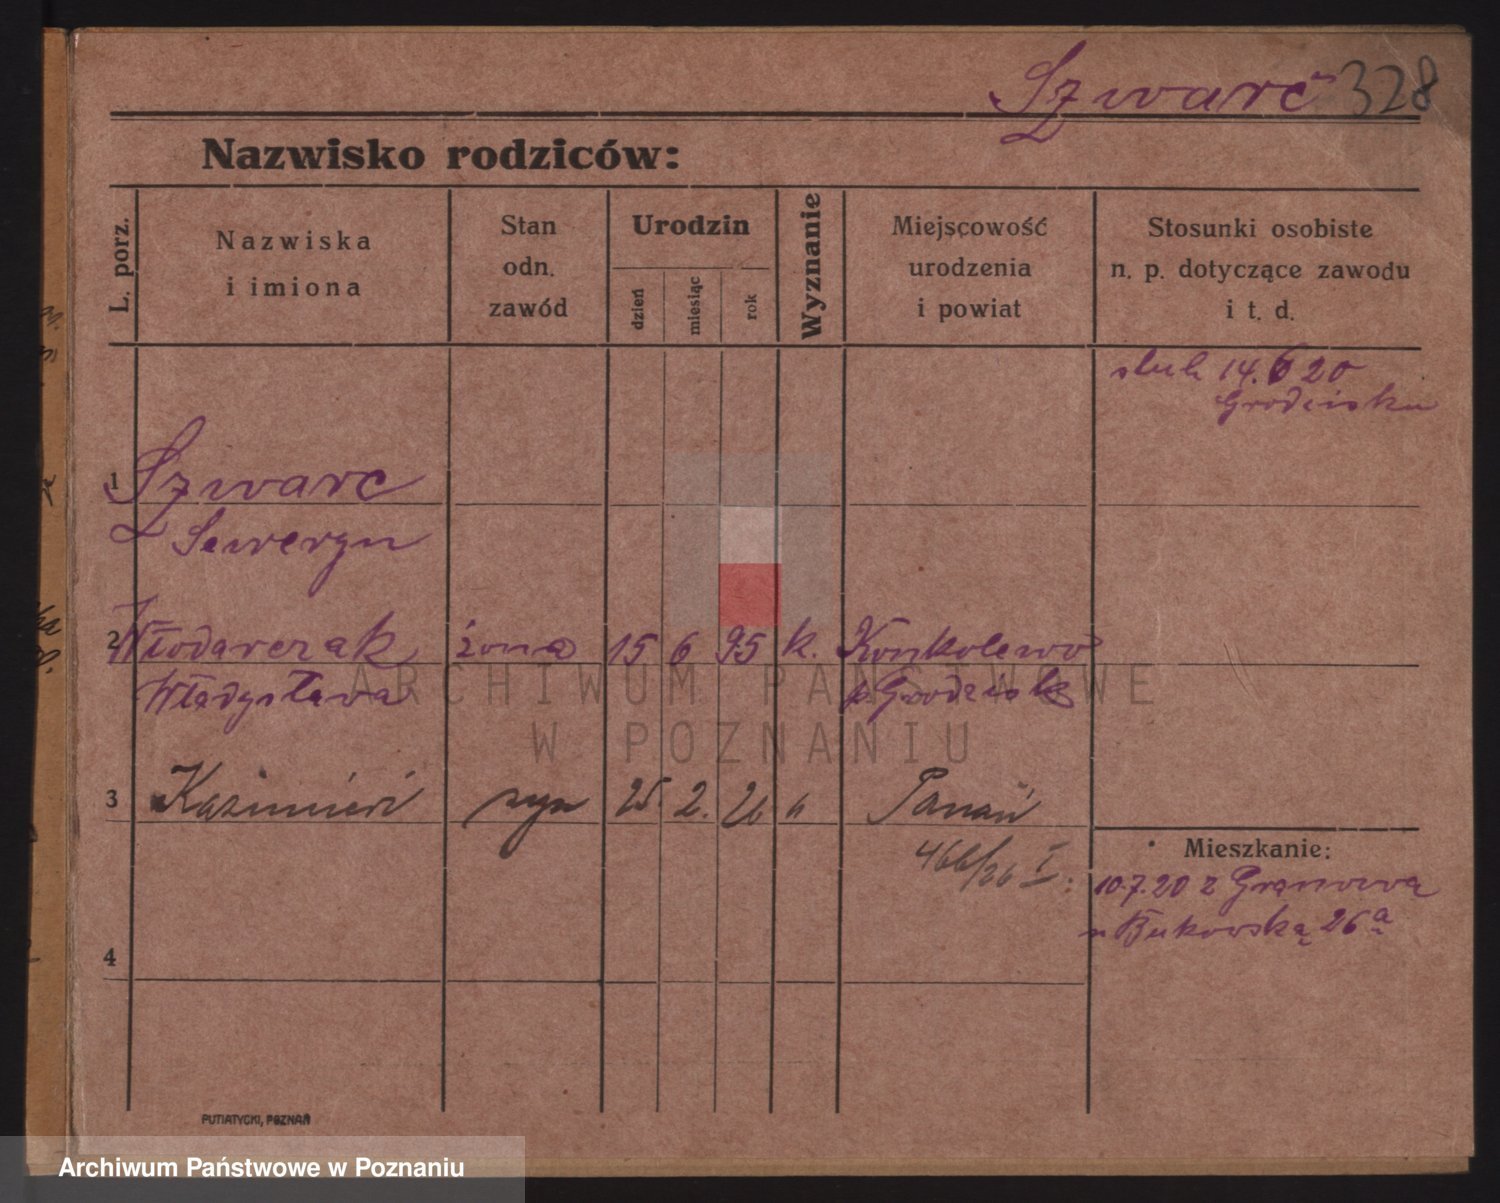 Szwarc 328
Nazwisko rodziców:
L. porz.
Nazwiska
i imiona
Stan
odn.
zawód
Urodzin
dzień
miesiąc
rok
Wyznanie
Miejscowość
urodzenia
i powiat
Stosunki osobiste
n. p. dotyczące zawodu
i t. d.
ślub 14.6 20
Grodzisku
1 Szwarc
Seweryn
2 Włodarczak żona 15 6 95 k. Konkolewo
Władysława p. Grodzisk
3 Kazimierz syn 25. 2. 26 " Poznań
466/26 I.
Mieszkanie:
10.7.20 z Granowa
n Bukowska 26a
4
PUTIATYCKI, POZNAŃ
ARCHIWUM PAŃSTWOWE
W POZNANIU
Archiwum Państwowe w Poznaniu